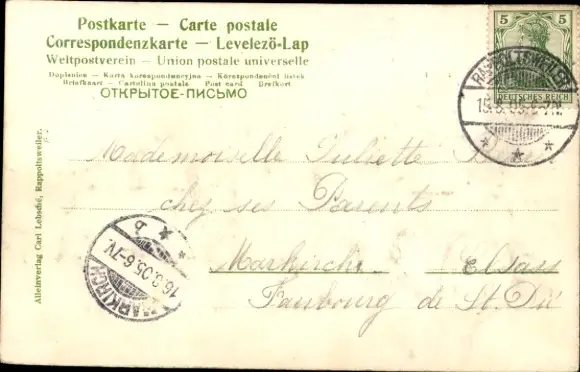 Postkarte — Carte postale
Correspondenzkarte — Levelező-Lap
Weltpostverein — Union postale universelle
Dopisnice — Karta korespondencyjna — Korespondenční lístek
Briefkaart — Cartolina postale Post card Brefkort
ОТКРЫТОЕ-ПИСЬМО
5 5
DEUTSCHES REICH
RAPPOLTSWEILER
15.8.05. 6-7N.
Mademoiselle Juliette
chez ses Parents
Markirch Elsass
Faubourg de St. Dié
MARKIRCH
16.8.05. 6-7V.
b
Alleinverlag Carl Lebsché, Rappoltsweiler.